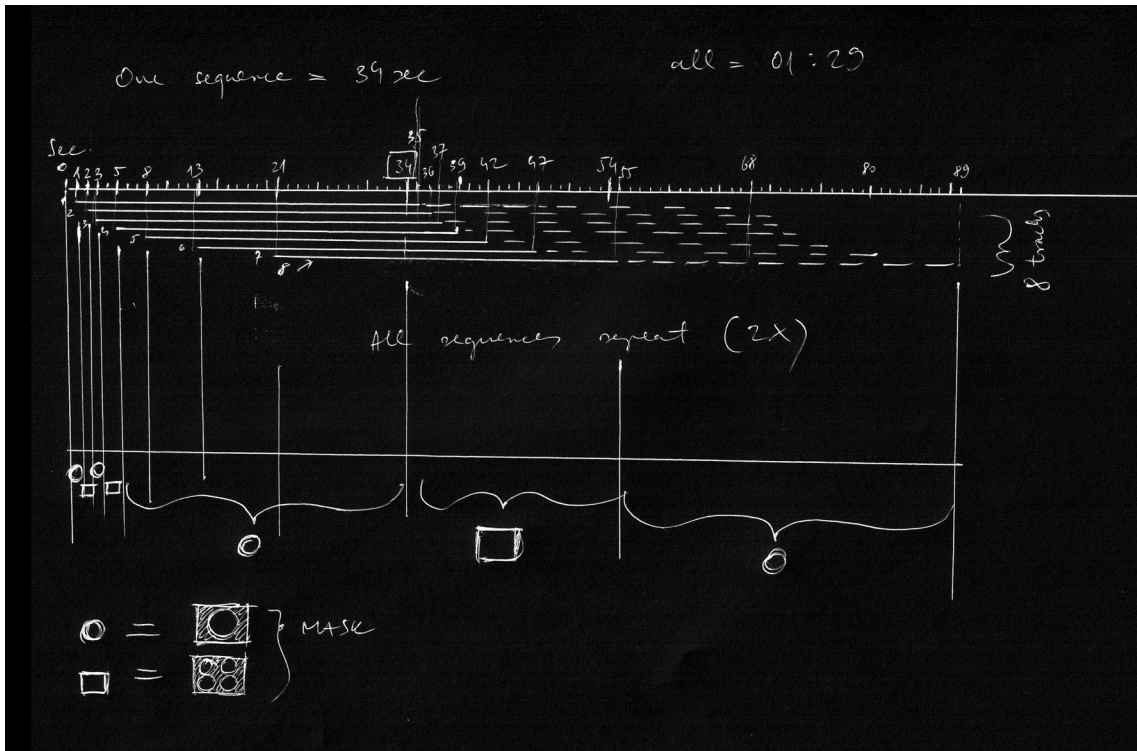 One sequence = 34 sec
all = 01:29
Sec.
0 1 2 3 5 8 13 21 34 35 36 37 39 42 47 54 55 68 80 89
1
2
3
4
5
6
7
8
8 tracks
All sequences repeat (2X)
= 
= 
MASK